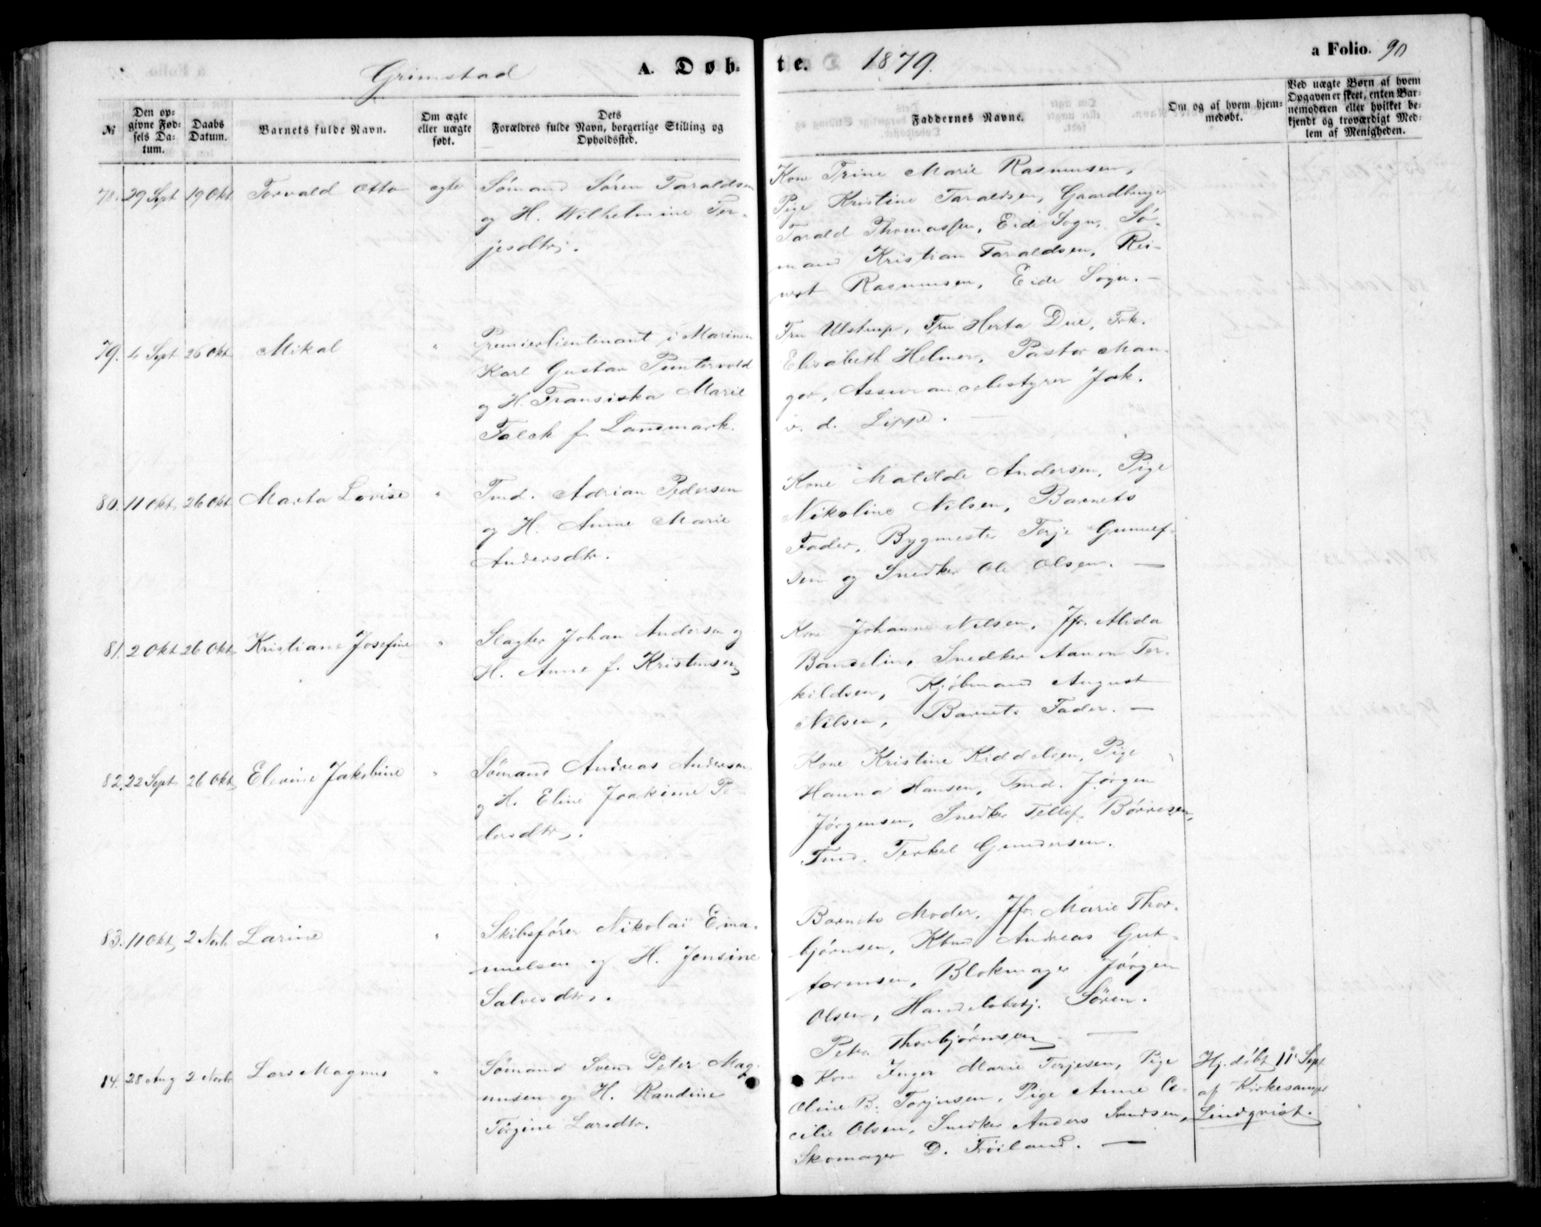 Grimstad A. Døb- te. 1879. a Folio. 90
№
Den op-
givne Fød-
sels Da-
tum.
Daabs
Datum.
Barnets fulde Navn.
Om ægte
eller uægte
født.
Dets
Forældres fulde Navn, borgerlige Stilling og
Opholdssted.
Faddernes Navne.
Om og af hvem hjem-
medøbt.
Ved uægte Børn af hvem
Opgaven er skeet, enten Bar-
nemoderen eller hvilket be-
kjendt og troværdigt Med-
lem af Menigheden.
29 Sept 19 Okt Torvald Otto ægte Sømand Søren Taraldsen
og H. Wilhelmine Ter-
jesdtr.
Kone Trine Marie Rasmussen,
Pige Kristine Taraldsen, Gaardbruger
Tarald Thomassen, Eide Sogn, Sø-
mand Kristian Taraldsen,
Rasmussen, Eide Sogn. —
79. 4 Sept 26 Okt Mikal " Premierlieutenant i Marinen
Karl Gustav Puntervold
og H. Fransiska Marie
Falch f. Landmark.
Fru Ulstrup, Fru Herta Due, Frk.
Elisabeth Helmer, Pastor Man-
gor, Assurancebestyrer Jak.
v. d. Lippe. —
80. 11 Okt, 26 Okt Marta Lovise " Tmd. Adrian Pedersen
og H. Anne Marie
Andersdtr.
Kone Matilde Andersen, Pige
Nikoline Nilsen, Barnets
Fader, Bygmester Terje Gunnuf-
sen og Snedker Ole Olsen. —
81. 2 Okt 26 Okt, Kristiane Josefine " Slagter Johan Andersen og
H. Anne f. Kristensen
Kone Johanne Nilsen, Jfr. Alida
Snedker Aanon Ter-
kildsen, Kjøbmand August
Nilsen, Barnets Fader. —
82. 22 Sept 26 Okt, Elevine Jakobine " Sømand Andreas Andersen
og H. Eline Joakime Pe-
dersdtr.
Kone Kristine Kiddelsen, Pige
Hanna Hansen, Tmd. Jørgen
Jørgensen, Snedker Tellef Børresen,
Tmd. Terkel Gundersen.
83. 11 Okt, 2 Novb Larine " Skibsfører Nikolai Ema-
nuelsen og H. Jensine
Salvesdtr.
Barnets Moder, Jfr. Marie Thor-
bjørnsen, Kbmd Andreas Gut-
tormsen, Blokmager Jørgen
Olsen, Handelsbetj. Søren
Peter Thorbjørnsen —
14. 28 Aug 2 Novb Lars Magnus " Sømand Svend Peter Mag-
nusen og H. Randine
Torgine Larsdtr.
Kone Inger Marie Terjesen, Pige
Oline B. Torjusen, Pige Anne Ce-
cilie Olsen, Snedker Anders Svendsen,
Skomager D. Trøiland. —
Hj. døbt 11 Sept
af Kirkesanger
Lindqvist.